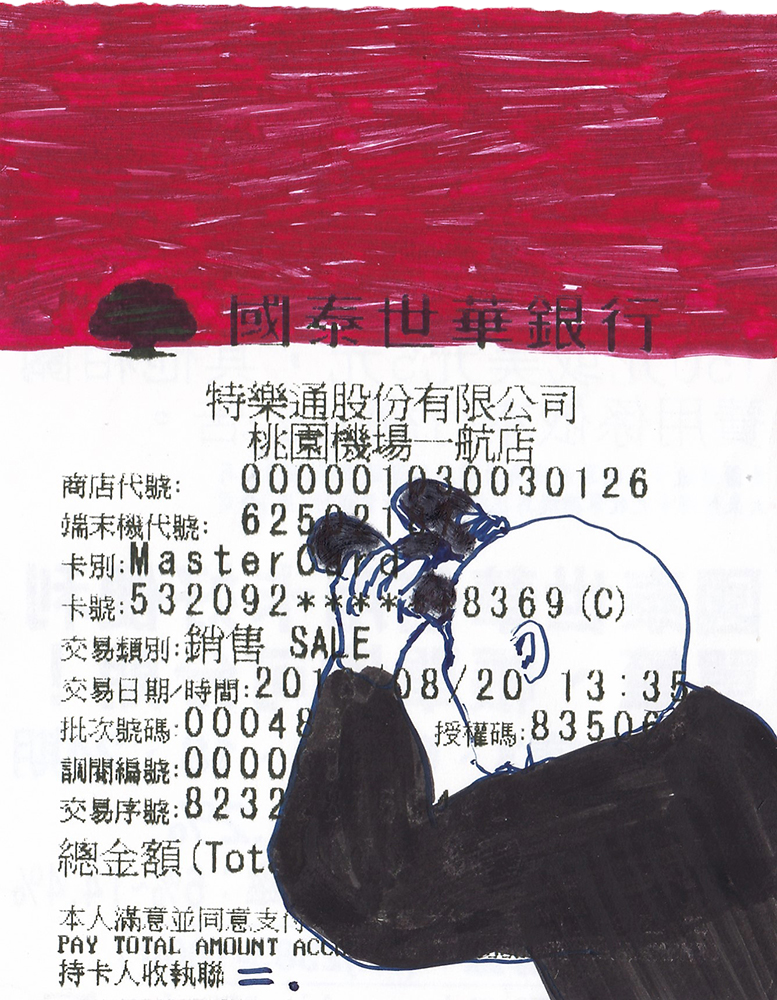 國泰世華銀行
特樂通股份有限公司
桃園機場一航店
商店代號: 000001030030126
端末機代號: 625021
卡別:MasterCard
卡號:532092******8369(C)
交易類別:銷售 SALE
交易日期/時間:2018/08/20 13:35
批次號碼:00048 授權碼:83506
調閱編號:0000
交易序號:8232
總金額(Tota
本人滿意並同意支付
PAY TOTAL AMOUNT ACC
持卡人收執聯 =.